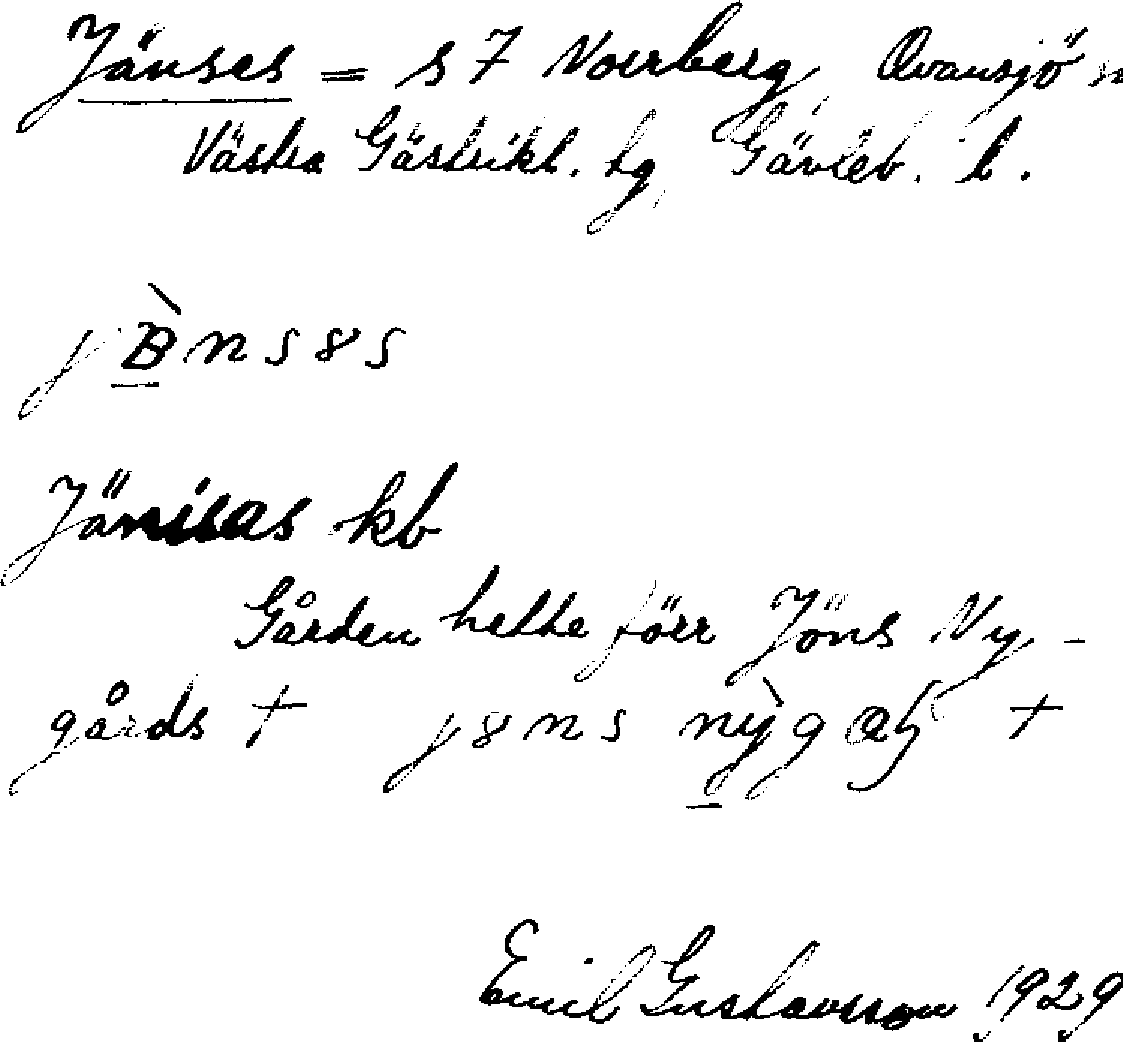 Jänses = s 7 Norrberg, Ovansjö
Västra Gästrikl. tg, Gävleb. l.
Jänisas kb
Gården hette förr Jöns Ny-
gårds +
Emil Gustavsson 1929